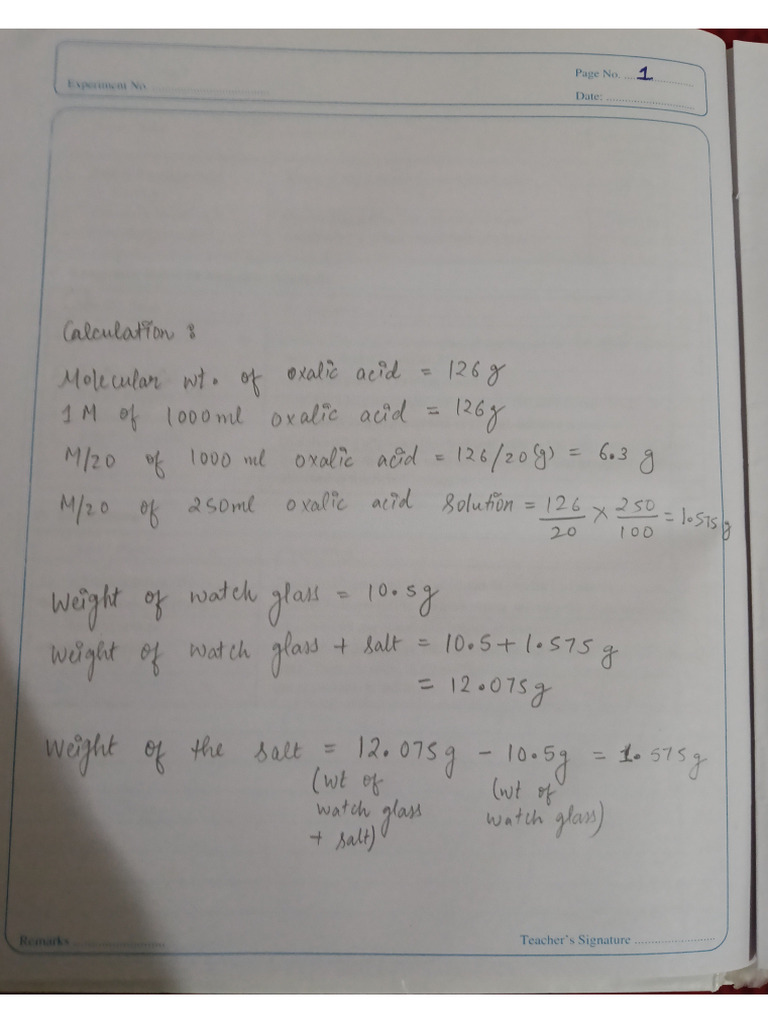 Page No. ....1....
Experiment No. ....
Date: ....
Calculation :
Molecular wt. of oxalic acid = 126 g
1 M of 1000 ml oxalic acid = 126g
M/20 of 1000 ml oxalic acid = 126/20(g) = 6.3 g
M/20 of 250ml oxalic acid solution = 126/20 × 250/100 = 1.575 g
Weight of watch glass = 10.5g
Weight of watch glass + salt = 10.5 + 1.575 g
= 12.075g
Weight of the salt = 12.075g - 10.5g = 1.575g
(wt of (wt of
watch glass watch glass)
+ salt)
Remarks ....
Teacher's Signature ....